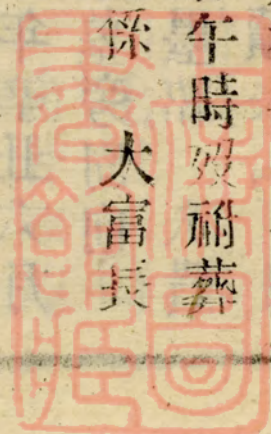 午時歿祔葬
係 大富長